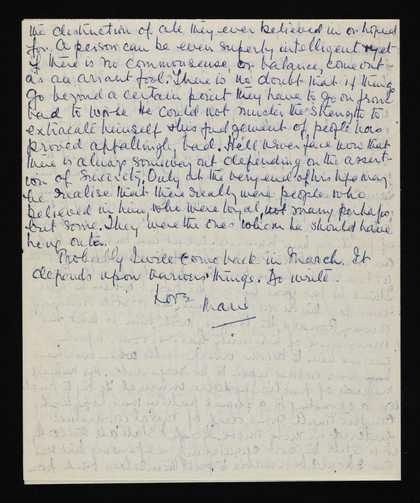 the destruction of all they ever believed in or hoped
for. A person can be even superbly intelligent & yet
if there is no commonsense, or balance, come out
as an arrant fool. There is no doubt that if things
go beyond a certain point they have to go on from
bad to worse. He could not muster the strength to
extricate himself & his judgement of people has
proved appallingly bad. He'll never face now that
there is always some way out depending on the assert-
ion of sincerity. Only at the very end of his life may
he realise that there really were people who
believed in him, who were loyal, not many perhaps,
but some. They were the ones whom he should have
hung onto.
Probably I will come back in March. It
depends upon various things. Do write.
Love